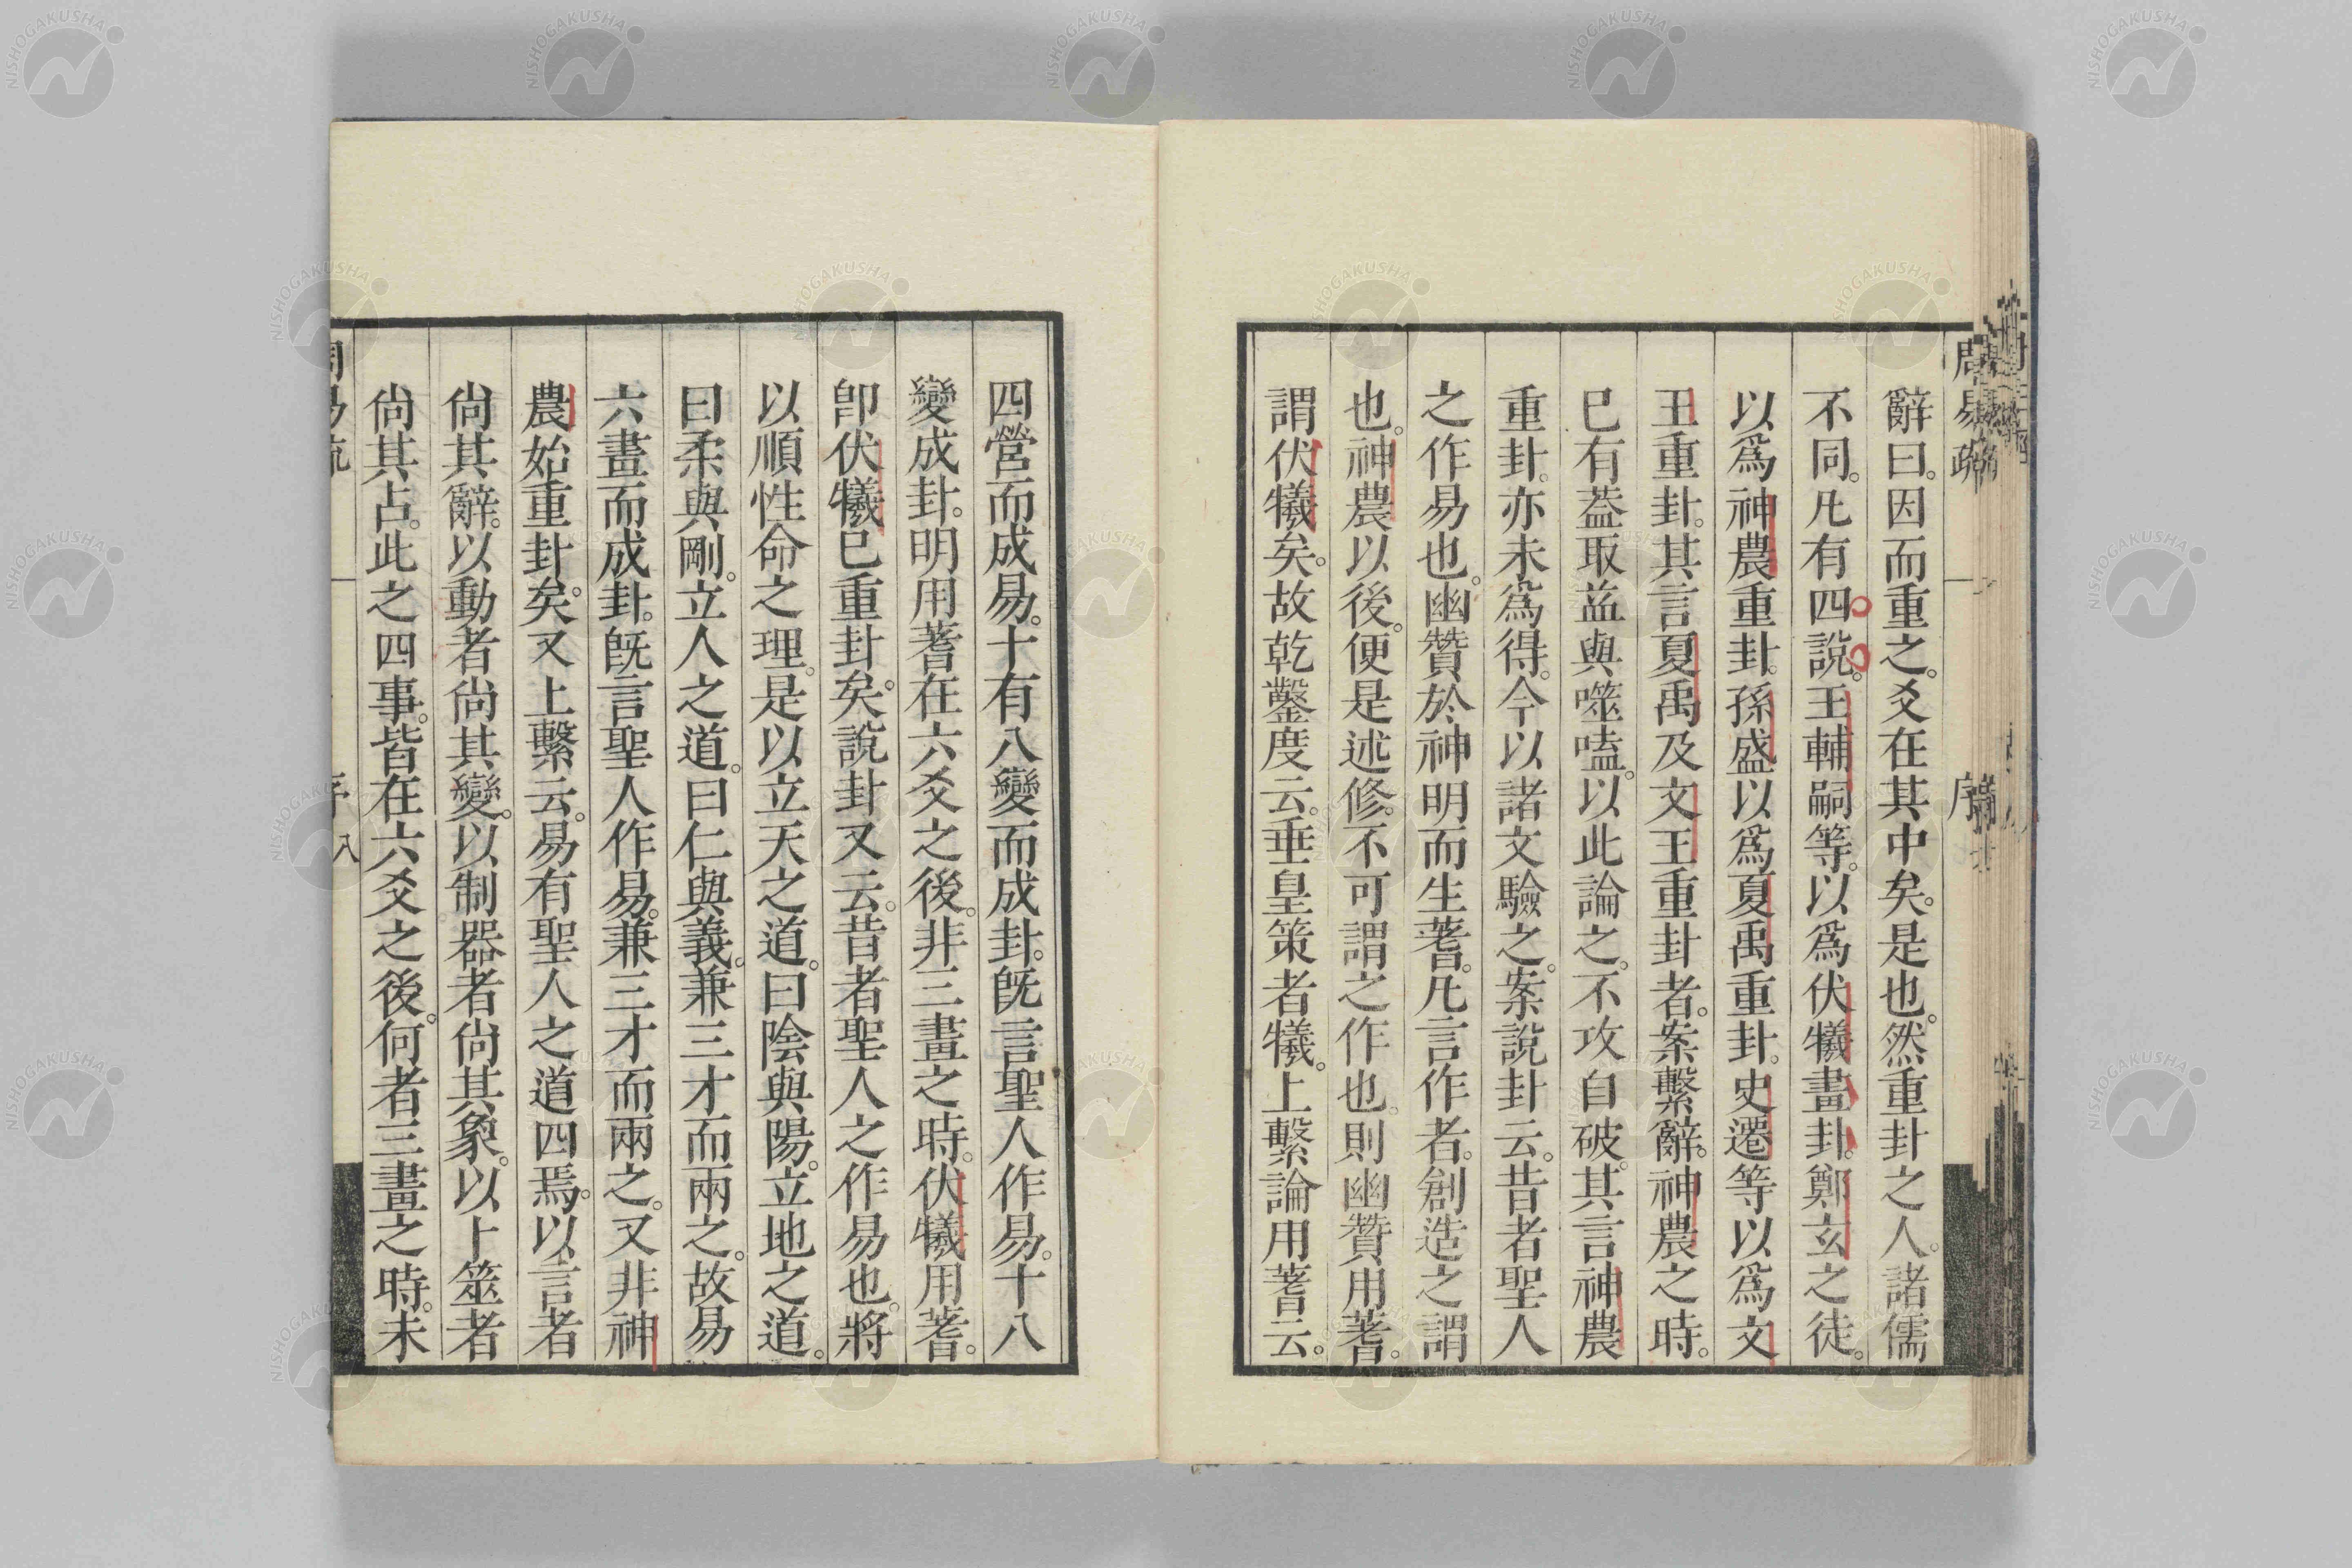 周易疏　序
辭曰。因而重之。爻在其中矣。是也。然重卦之人。諸儒
不同。凡有四說。王輔嗣等。以爲伏犧畫卦。鄭玄之徒。
以爲神農重卦。孫盛以爲夏禹重卦。史遷等以爲文
王重卦。其言夏禹及文王重卦者。案繫辭。神農之時。
已有葢取益與噬嗑。以此論之。不攻自破。其言神農
重卦。亦未爲得。今以諸文驗之。案說卦云。昔者聖人
之作易也。幽贊於神明而生蓍。凡言作者。創造之謂
也。神農以後。便是述修。不可謂之作也。則幽贊用蓍。
謂伏犧矣。故乾鑿度云。垂皇策者犧。上繫論用蓍云。
四營而成易。十有八變而成卦。旣言聖人作易。十八
變成卦。明用蓍在六爻之後。非三畫之時。伏犧用蓍。
卽伏犧已重卦矣。說卦又云。昔者聖人之作易也。將
以順性命之理。是以立天之道。曰陰與陽。立地之道。
曰柔與剛。立人之道。曰仁與義。兼三才而兩之。故易
六畫而成卦。旣言聖人作易。兼三才而兩之。又非神
農始重卦矣。又上繫云。易有聖人之道四焉。以言者
尙其辭。以動者尙其變。以制器者尙其象。以卜筮者
尙其占。此之四事。皆在六爻之後。何者三畫之時。未
周易疏　序　八
NISHOGAKUSHA